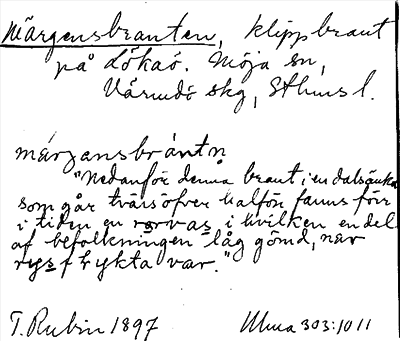 Märgensbranten, klippbrant
på Lökaö. Möja sn,
Värmdö skg, Sthms l.
märgansbräntn
"Nedanför denna brant, i en dalsänka
som går tvärsöfver halfön fanns förr
i tiden en rorvas i hvilken en del
af befolkningen låg gömd, när
rysfrykta var."
T. Rubin 1897
Uma 303:1011